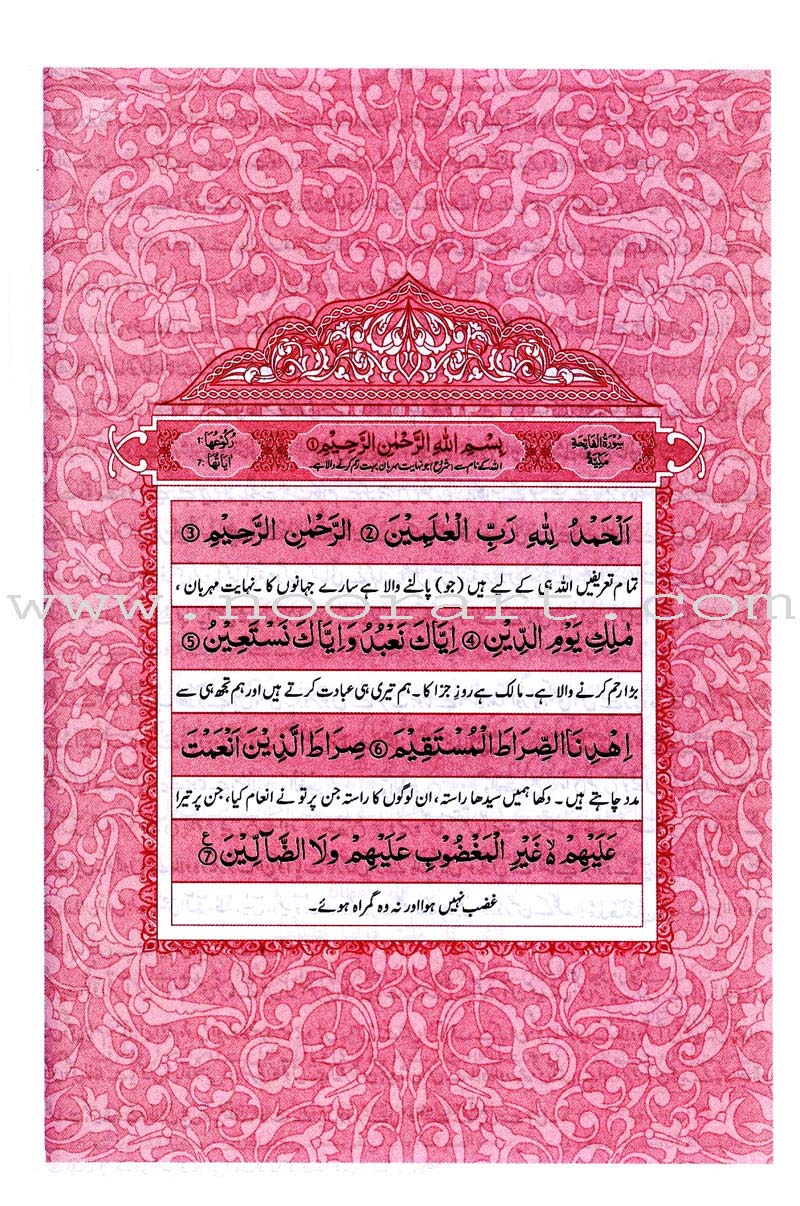 سُوْرَةُ الْفَاتِحَةِ
مَكِّيَّةٌ
بِسْمِ اللّٰهِ الرَّحْمٰنِ الرَّحِيْمِ ①
اللہ کے نام سے (شروع) جو نہایت مہربان، بہت رحم کرنے والا ہے۔
رُكُوْعُهَا: 1
اٰيَاتُهَا: 7
اَلْحَمْدُ لِلّٰهِ رَبِّ الْعٰلَمِيْنَ ② الرَّحْمٰنِ الرَّحِيْمِ ③
تمام تعریفیں اللہ ہی کے لیے ہیں (جو) پالنے والا ہے سارے جہانوں کا۔ نہایت مہربان،
www.noorart.com
مٰلِكِ يَوْمِ الدِّيْنِ ④ اِيَّاكَ نَعْبُدُ وَاِيَّاكَ نَسْتَعِيْنُ ⑤
بڑا رحم کرنے والا ہے۔ مالک ہے روزِ جزا کا۔ ہم تیری ہی عبادت کرتے ہیں اور ہم تجھ ہی سے
اِهْدِنَا الصِّرَاطَ الْمُسْتَقِيْمَ ⑥ صِرَاطَ الَّذِيْنَ اَنْعَمْتَ
مدد چاہتے ہیں۔ دکھا ہمیں سیدھا راستہ، ان لوگوں کا راستہ جن پر تو نے انعام کیا، جن پر تیرا
عَلَيْهِمْ ۙ۬ غَيْرِ الْمَغْضُوْبِ عَلَيْهِمْ وَلَا الضَّآلِّيْنَ ⑦ ع
غضب نہیں ہوا اور نہ وہ گمراہ ہوئے۔